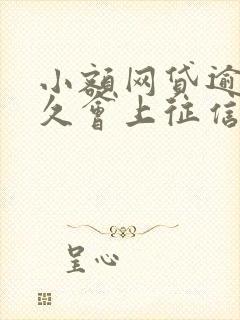 小额网贷逾
久会上征信
呈心